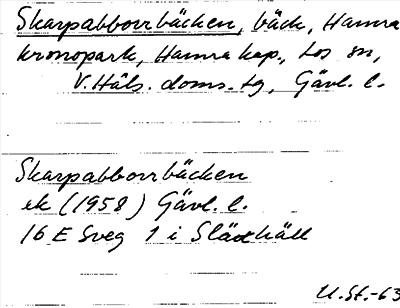 Skarpabborrbäcken, bäck, Hamra
kronopark, Hamra kap., Los sn,
V. Häls. doms. tg, Gävl. l.
Skarpabborrbäcken
ek (1958) Gävl. l.
16 E Sveg 1 i
U.St.-63